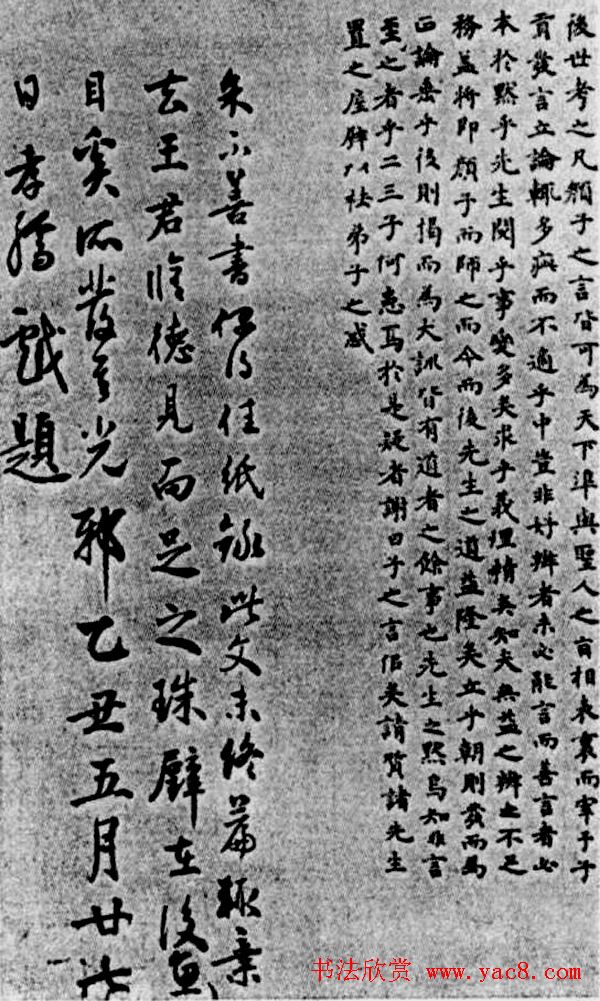 後世考之凡顏子之言皆可為天下準與聖人之旨相表裏而宰予子
貢發言立論輒多疵而不適乎中豈非好辯者未必能言而善言者必
本於默乎先生閱乎事變多矣求乎義理精矣知夫無益之辯之不足
務蓋將即顏子而師之而今而後先生之道益隆矣立乎朝則發而為
正論垂乎後則揭而為大訓皆有道者之餘事也先生之默烏知非言
至之者乎二三子何患焉於是疑者謝曰子之言信矣請質諸先生
置之座壁以祛弟子之惑
朱不善書偶得佳紙錄此文未終篇輒棄
去王君惟德見而足之珠璧在後
目奚所發其光邪乙丑五月廿
日孝孺戲題
书法欣赏 www.yac8.com